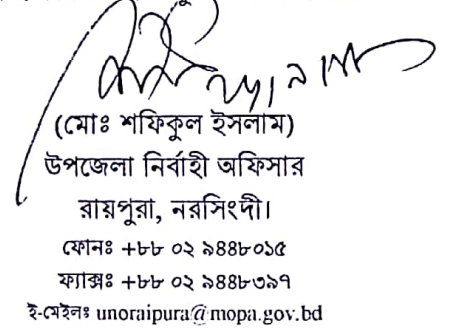 (মোঃ শফিকুল ইসলাম)
উপজেলা নির্বাহী অফিসার
রায়পুরা, নরসিংদী।
ফোনঃ +৮৮ ০২ ৯৪৪৮০১৫
ফ্যাক্সঃ +৮৮ ০২ ৯৪৪৮৩৯৭
ই-মেইলঃ unoraipura@mopa.gov.bd